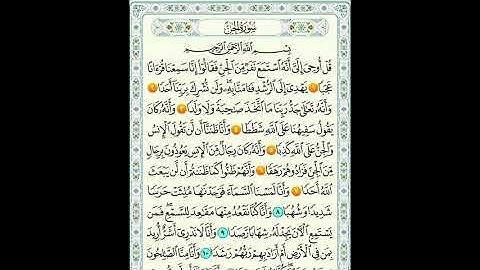 سُورَةُ الجِنِّ
بِسْمِ اللَّهِ الرَّحْمَٰنِ الرَّحِيمِ
قُلْ أُوحِيَ إِلَيَّ أَنَّهُ اسْتَمَعَ نَفَرٌ مِّنَ الْجِنِّ فَقَالُوا إِنَّا سَمِعْنَا قُرْآنًا
عَجَبًا ١ يَهْدِي إِلَى الرُّشْدِ فَآمَنَّا بِهِ وَلَن نُّشْرِكَ بِرَبِّنَا أَحَدًا ٢
وَأَنَّهُ تَعَالَىٰ جَدُّ رَبِّنَا مَا اتَّخَذَ صَاحِبَةً وَلَا وَلَدًا ٣ وَأَنَّهُ كَانَ
يَقُولُ سَفِيهُنَا عَلَى اللَّهِ شَطَطًا ٤ وَأَنَّا ظَنَنَّا أَن لَّن تَقُولَ الْإِنسُ
وَالْجِنُّ عَلَى اللَّهِ كَذِبًا ٥ وَأَنَّهُ كَانَ رِجَالٌ مِّنَ الْإِنسِ يَعُوذُونَ بِرِجَالٍ
مِّنَ الْجِنِّ فَزَادُوهُمْ رَهَقًا ٦ وَأَنَّهُمْ ظَنُّوا كَمَا ظَنَنتُمْ أَن لَّن يَبْعَثَ
اللَّهُ أَحَدًا ٧ وَأَنَّا لَمَسْنَا السَّمَاءَ فَوَجَدْنَاهَا مُلِئَتْ حَرَسًا
شَدِيدًا وَشُهُبًا ٨ وَأَنَّا كُنَّا نَقْعُدُ مِنْهَا مَقَاعِدَ لِلسَّمْعِ فَمَن
يَسْتَمِعِ الْآنَ يَجِدْ لَهُ شِهَابًا رَّصَدًا ٩ وَأَنَّا لَا نَدْرِي أَشَرٌّ أُرِيدَ
بِمَن فِي الْأَرْضِ أَمْ أَرَادَ بِهِمْ رَبُّهُمْ رَشَدًا ١٠ وَأَنَّا مِنَّا الصَّالِحُونَ